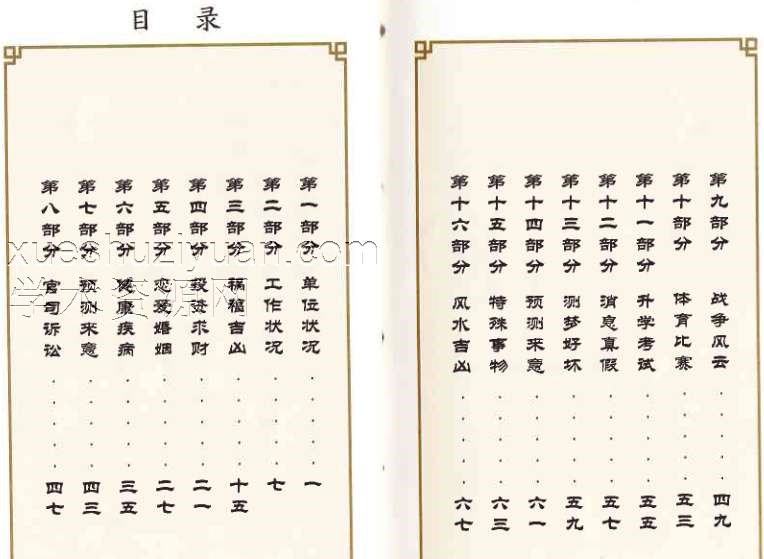 目 录
第一部分 单位状况 · · · · · 一
第二部分 工作状况 · · · · · 七
第三部分 祸福吉凶 · · · · · 十五
第四部分 投资求财 · · · · · 二一
第五部分 恋爱婚姻 · · · · · 二七
第六部分 健康疾病 · · · · · 三五
第七部分 预测来意 · · · · · 四三
第八部分 官司诉讼 · · · · · 四七
第九部分 战争风云 · · · · · 四九
第十部分 体育比赛 · · · · · 五三
第十一部分 升学考试 · · · · · 五五
第十二部分 消息真假 · · · · · 五七
第十三部分 测梦好坏 · · · · · 五九
第十四部分 预测来意 · · · · · 六一
第十五部分 特殊事物 · · · · · 六三
第十六部分 风水吉凶 · · · · · 六七
xueshuziyuan.com
学术资源网